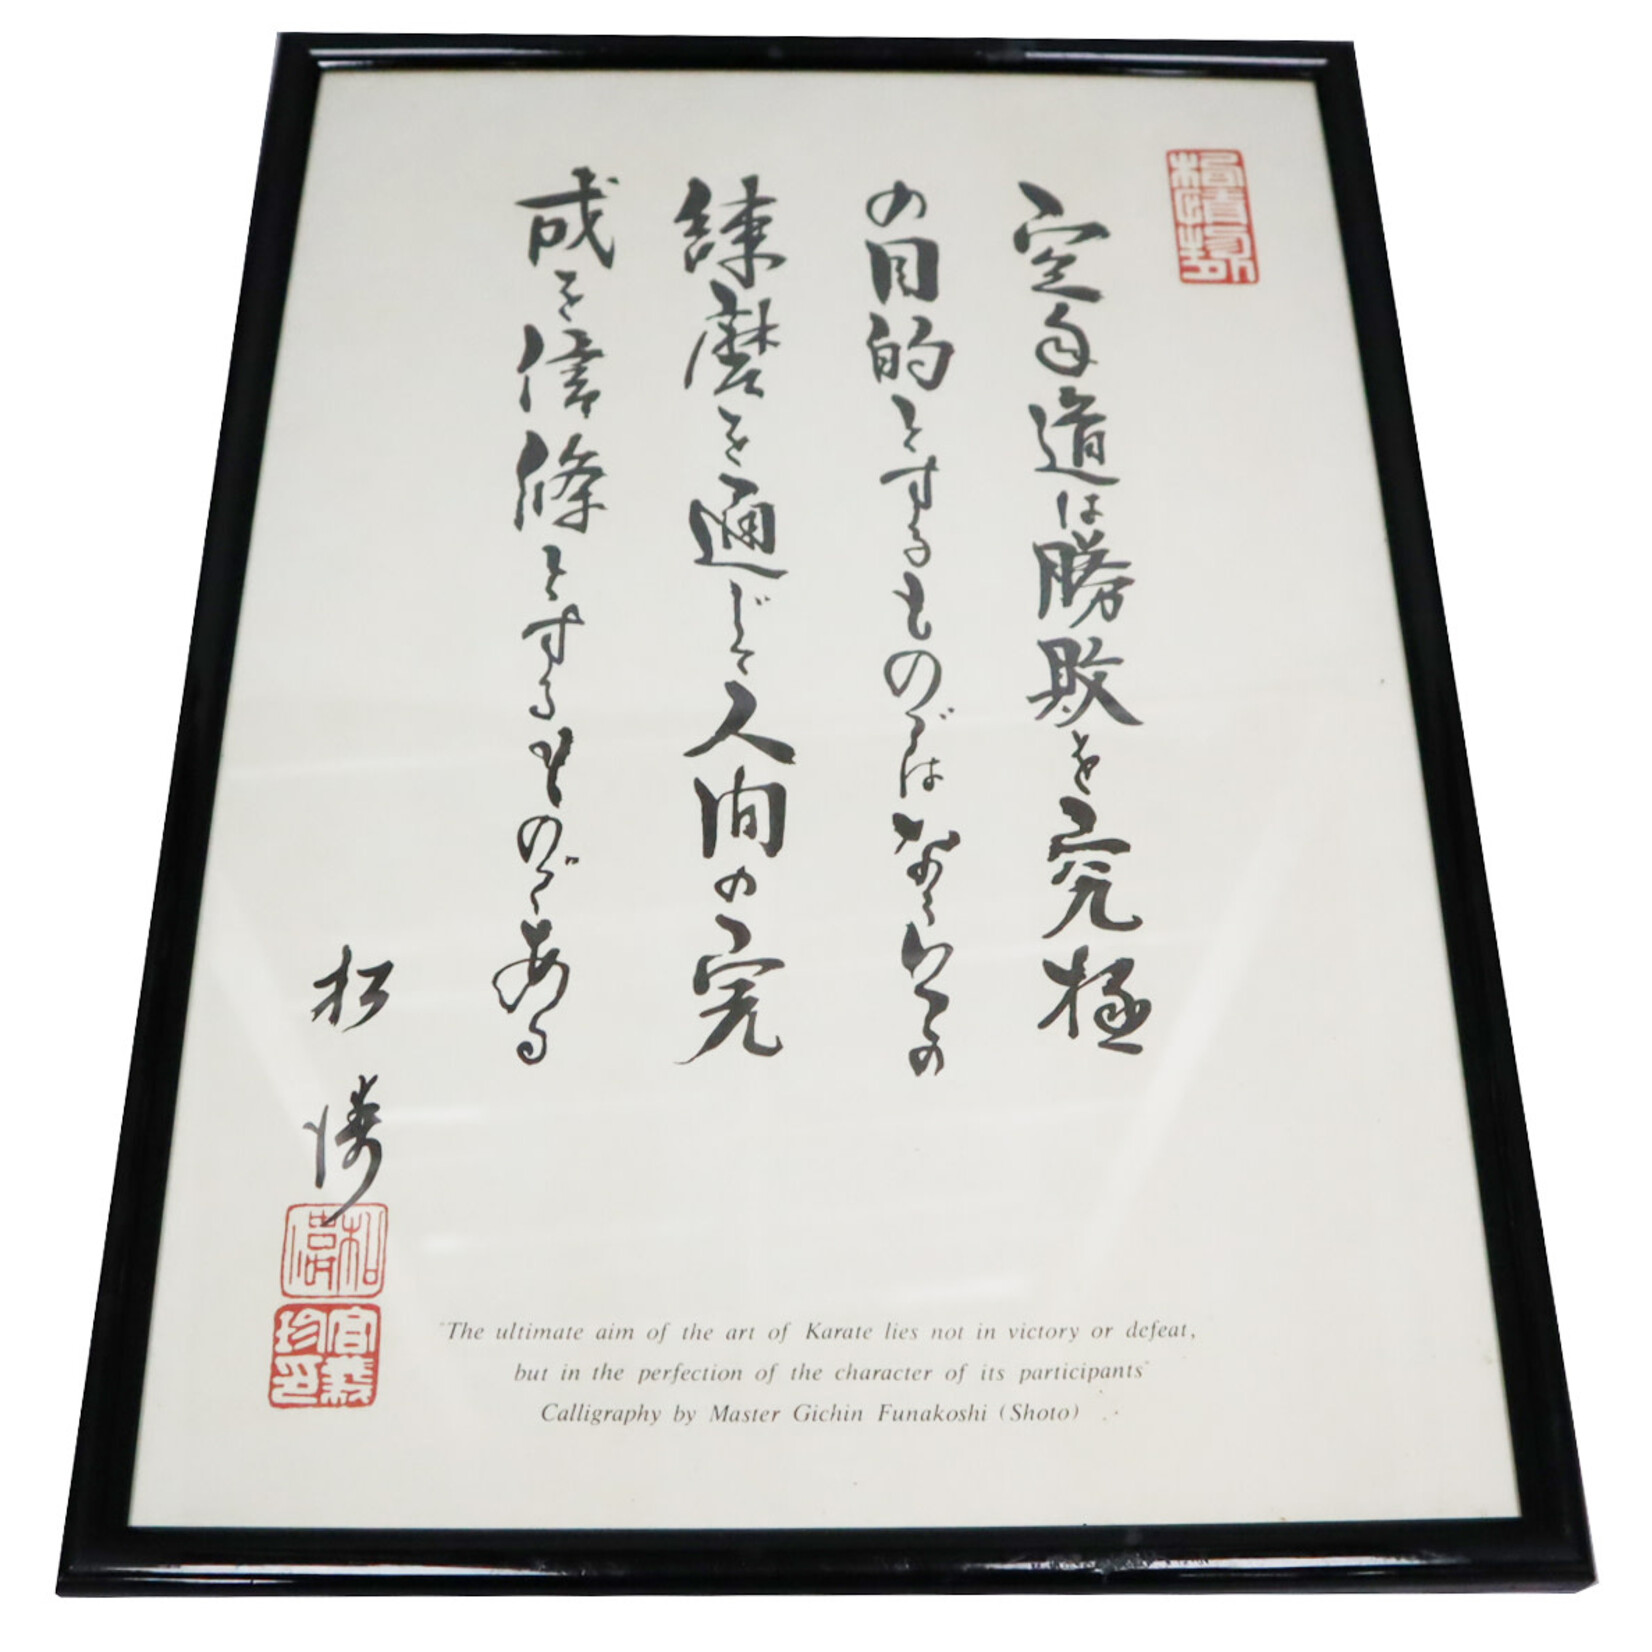 空手道は勝敗を究極
の目的とするものではなく心の
練磨を通じて人間の完
成を信條とするものである
松濤
"The ultimate aim of the art of Karate lies not in victory or defeat,
but in the perfection of the character of its participants"
Calligraphy by Master Gichin Funakoshi (Shoto)